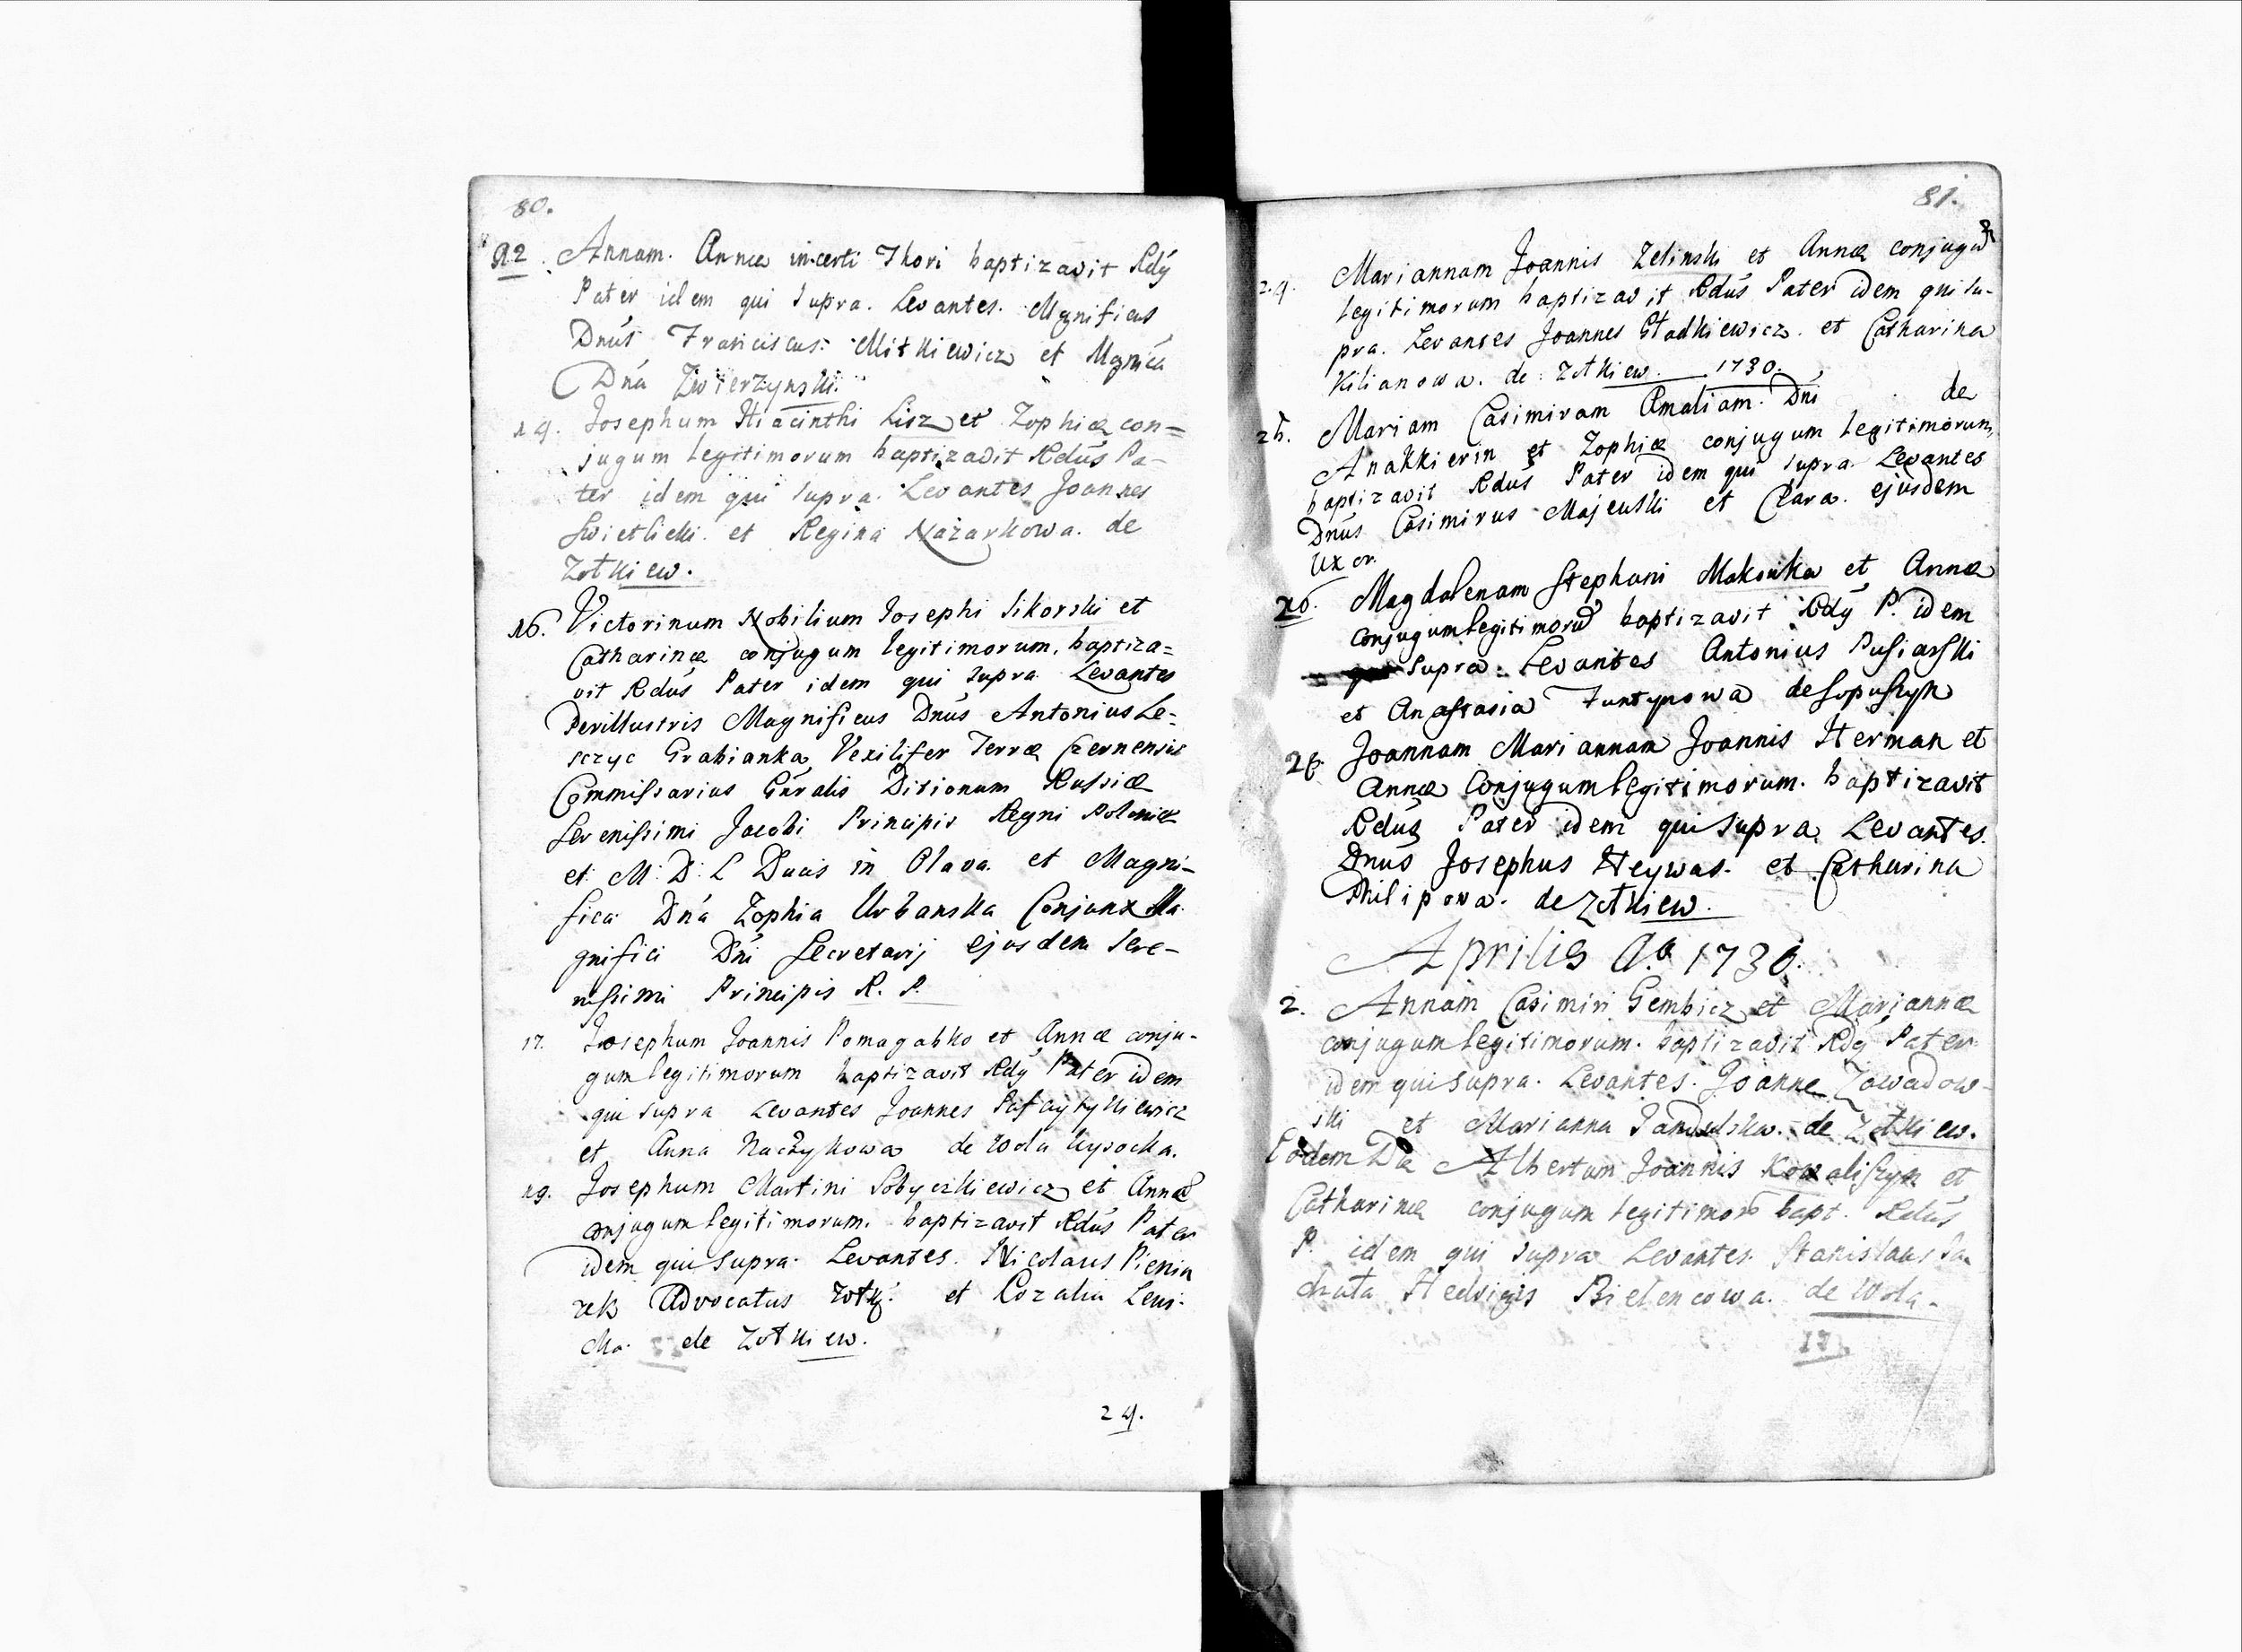 80.
12. Annam. Annæ incerti Thori baptizavit Rdý
Pater idem qui supra. Levantes. Mgnificus
Dnús Franciscus: Mitkiewicz et Mgnica
Dna Zwierzynski.
14. Josephum Hiacinthi Lisz et Zophiæ con=
jugum legitimorum baptizavit Rdús Pa-
ter idem qui supra. Levantes Joannes
Swietlicki. et Regina Nazarkowa. de
Zołkiew.
16. Victorinum Nobilium Josephi Sikorski et
Catharinæ conjugum legitimorum. baptiza=
vit Rdús Pater idem qui supra Levantes
Perillustris Magnificus Dnús Antonius Le=
sczyc Grabianka Vexilifer Terræ Czernensis
Commissarius Gúralis Ditionum Russiæ
Serenissimi Jacobi Principis Regni Poloniæ
et M: D: L Ducis in Olava. et Magni-
fica Dna Zophia Urbanska Conjunx Ma
gnifici Dni Secretarij ejusdem Sere-
nissimi Principis R. P.
17. Josephum Joannis Pomagabko et Annæ conju-
gum legitimorum baptizavit Rdý Pater idem
qui supra Levantes Joannes
et Anna de Wola Wysocka.
19. Josephum Martini Sobyczkiewicz et Annæ
conjugum legitimorum. baptizavit Rdús Pater
idem qui supra. Levantes. Nicolaus Pienia
zek Advocatus et Rozalia Lewi-
cka. de Zołkiew.
24.
81.
24. Mariannam Joannis Zelinski et Annæ conjugū
legitimorum baptizavit Rdús Pater idem qui su-
pra. Levantes Joannes Gładkiewicz. et Catharina
Kilianowa. de Zołkiew. 1730.
25. Mariam Casimiram Amaliam. Dni de
Anakkierin et Zophiæ conjugum legitimorum,
baptizavit Rdús Pater idem qui supra Levantes
Dnús Casimirus Majewski et Clara. ejusdem
Uxor.
26. Magdalenam Stephani Makowka et Annæ
conjugum legitimorū baptizavit Rdý P. idem
supra. Levantes Antonius Pusiarski
et Anastasia Funtynowa de Sopuszyn
26. Joannam Mariannam Joannis Herman et
Annæ Conjugum legitimorum. baptizavit
Rdús Pater idem qui supra Levantes.
Dnús Josephus Heywas. et Catharina
Philipowa. de Zołkiew.
Aprilis Ao. 1730.
2. Annam Casimiri Gembicz et Mariannæ
conjugum legitimorum. baptizavit Rdý Pater
idem qui supra. Levantes. Joanne Zawadow-
ski et Marianna de Zołkiew.
Eodem Die Albertum Joannis Kowaliszyn et
Catharinæ conjugum legitimorū bapt. Rdús
P. idem qui supra Levantes. Stanislaus Sa-
chata Hedvigis Bielencowa. de Wola.
17